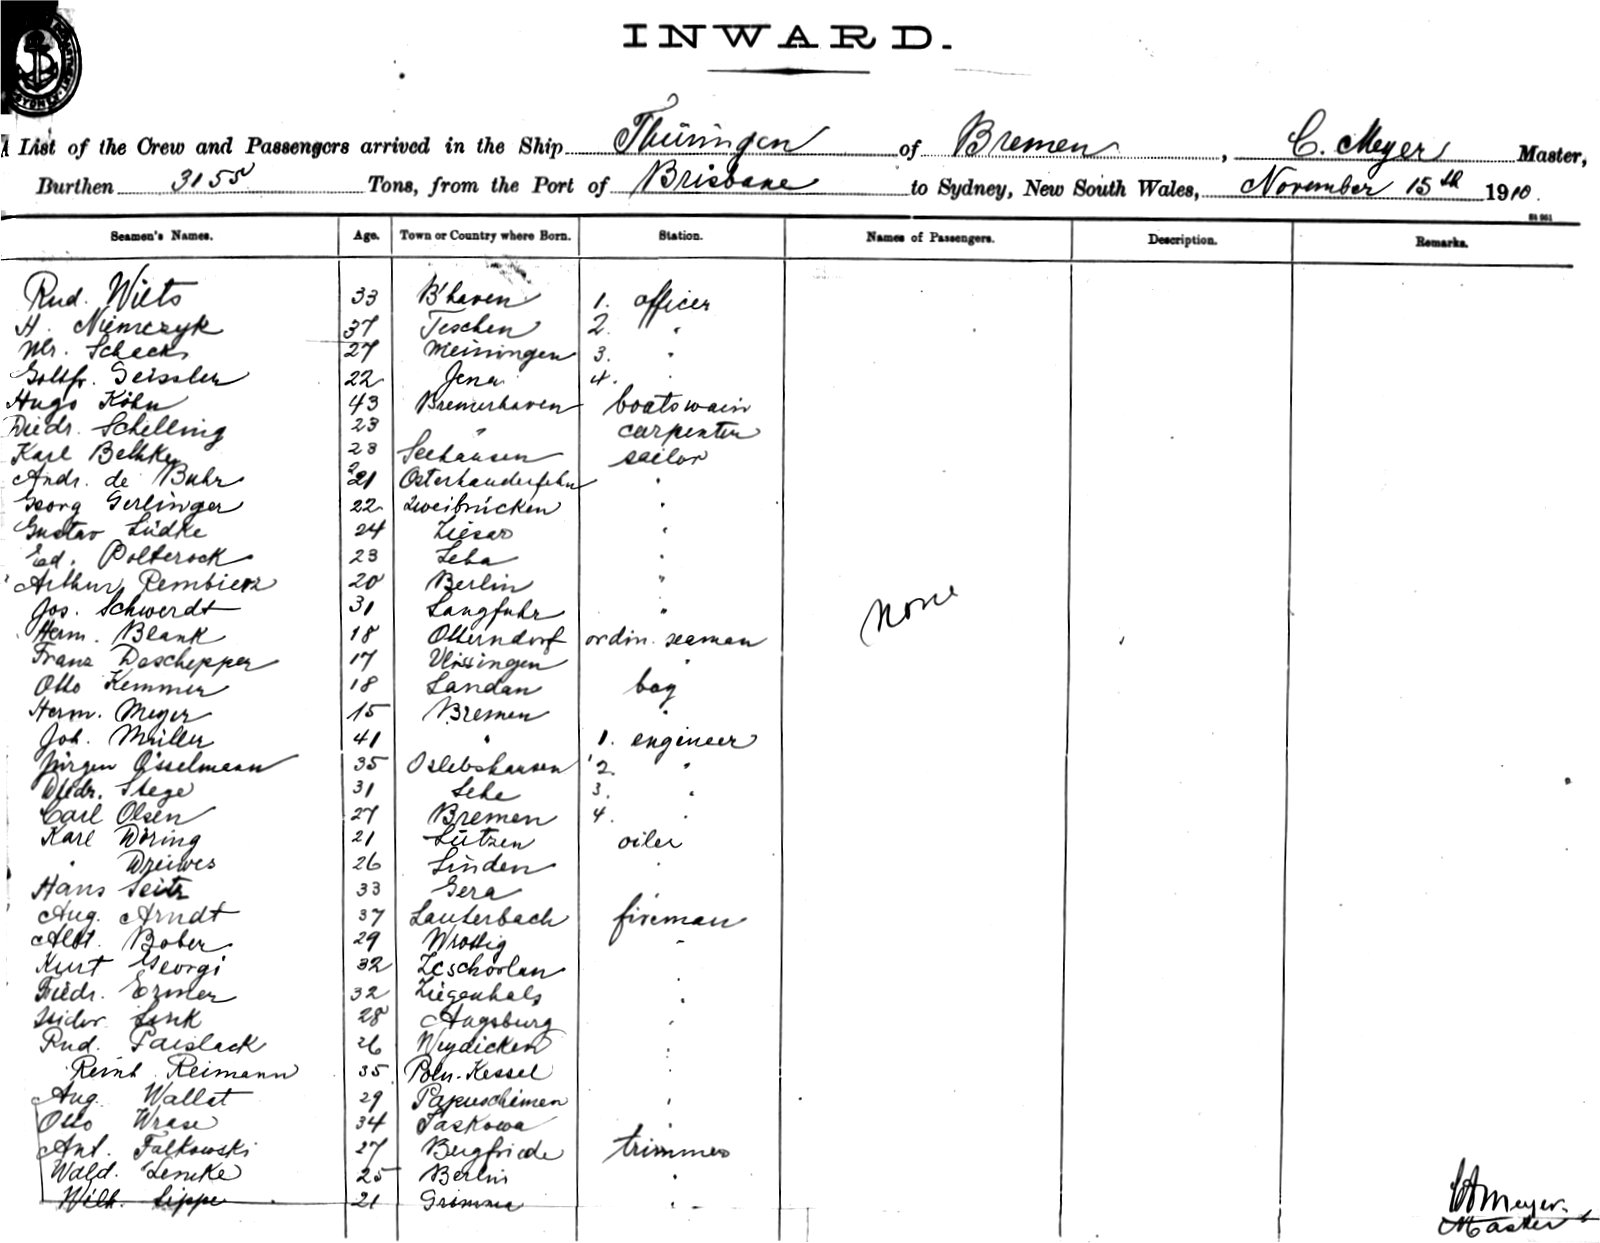 INWARD.
SYDNEY
A List of the Crew and Passengers arrived in the Ship Thüringen of Bremen, C. Meyer Master,
Burthen 3155 Tons, from the Port of Brisbane to Sydney, New South Wales, November 15th 1910.
Seamen's Names. Age. Town or Country where Born. Station. Names of Passengers. Description. Remarks.
Rud. Wilts 33 B'haven 1. officer
H. Niemczyk 37 Teschen 2. "
Scheck 27 Meiningen 3. "
Gottfr. Geissler 22 Jena 4. "
Hugo Köhn 43 Bremerhaven boatswain
Diedr. Schilling 23 " carpenter
Karl Bethke 23 Seehausen sailor
Andr. de Buhr 21 Osterhauderfehn "
Georg Gerlinger 22 Zweibrücken "
Gustav Lüdke 24 Ziesar "
Ed. Polterock 23 Leba "
Arthur Rembierz 20 Berlin "
Jos. Schwerdt 31 Langfuhr "
Herm. Blank 18 Otterndorf ordin. seaman
None
Franz Daschepper 17 Vlissingen "
Otto Kemmer 18 Landau boy
Herm. Meyer 15 Bremen "
Joh. Müller 41 " 1. engineer
Jürgen Gisselmann 35 Oslebshausen 2. "
Diedr. Stege 31 Lehe 3. "
Carl Olsen 27 Bremen 4. "
Karl Döring 21 Lützen oiler
" Dreiwes 26 Linden "
Hans Seitz 33 Gera "
Aug. Arndt 37 Lauterbach fireman
Albt. Bober 29 "
Kurt Georgi 32 Zschorlau "
Friedr. Ermer 32 Ziegenhals "
Isidor Link 28 Augsburg "
Rud. Paislack 26 Weydicken "
Reinh. Reimann 35 Poln. Kessel "
Aug. Wallat 29 Papuschienen "
Otto Wrase 34 Taskowa "
Ant. Falkowski 27 Bergfriede trimmer
Wald. Lemke 25 Berlin "
Wilh. Lippe 21 Grimma "
Meyer.
Master